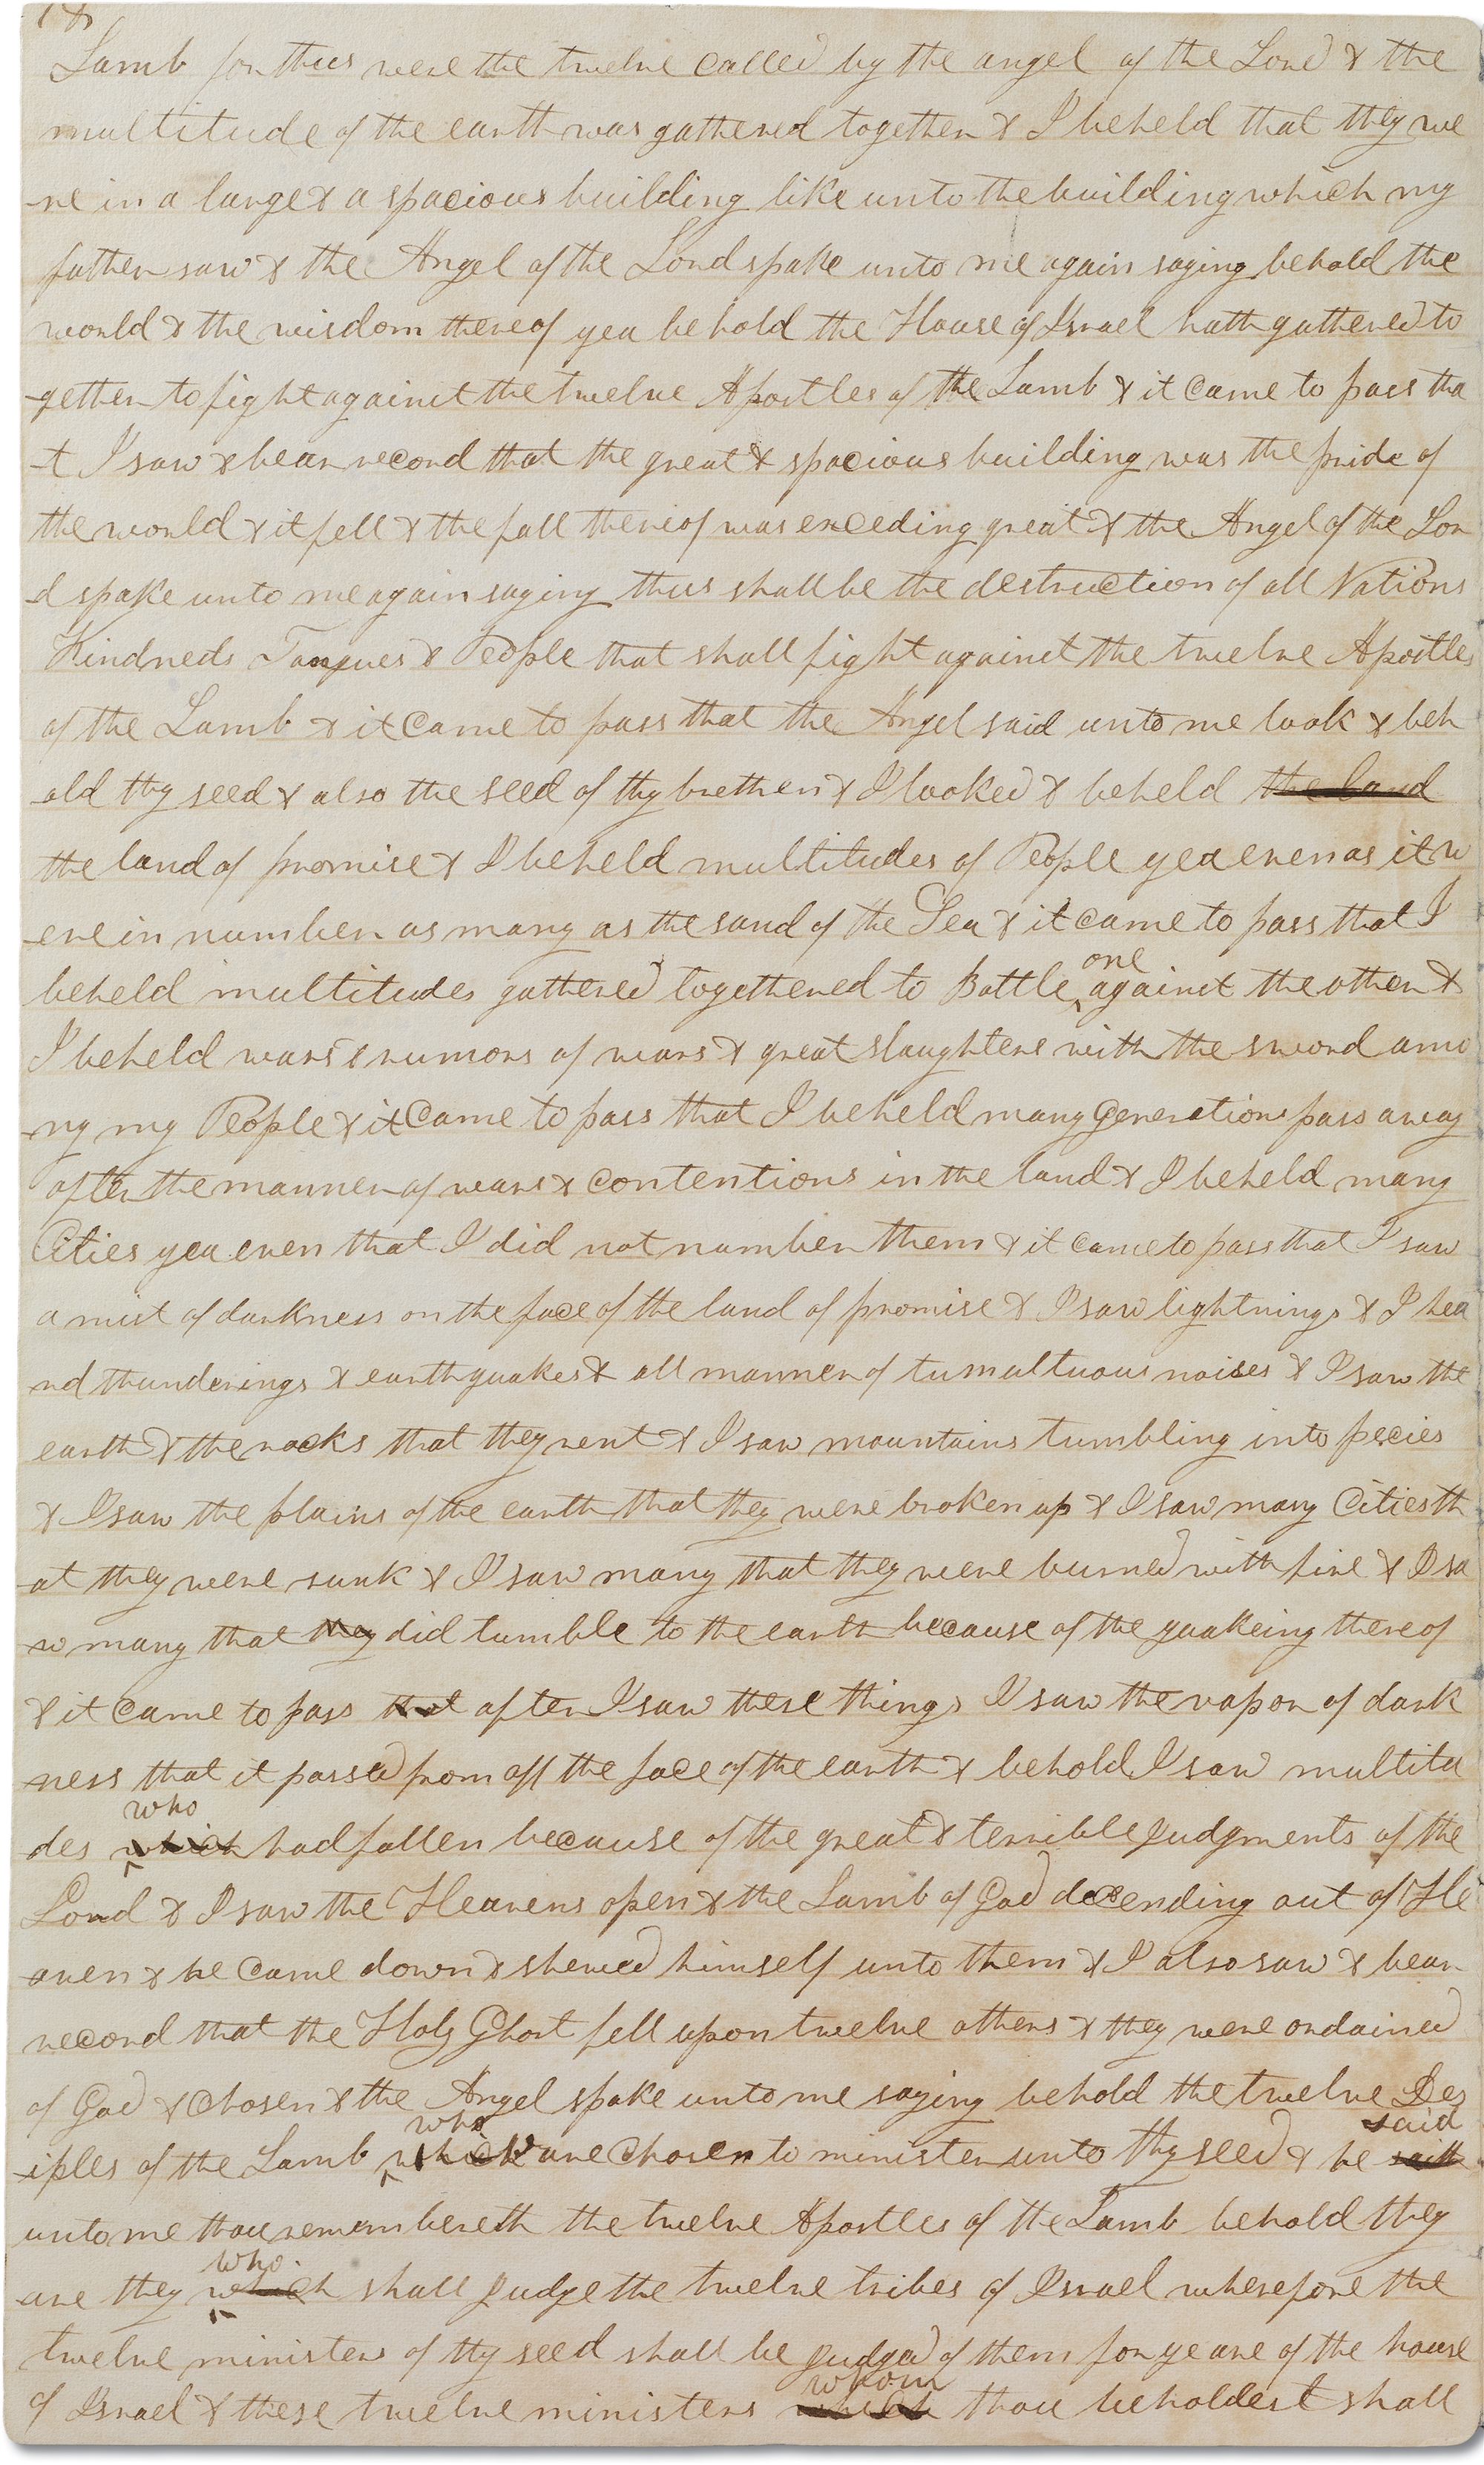 18
Lamb for thus were the twelve called by the angel of the Lord & the
multitude of the earth was gathered together & I beheld that they we
-re in a large & a spacious building like unto the building which my
father saw & the Angel of the Lord spake unto me again saying behold the
world & the wisdom thereof yea behold the House of Israel hath gathered to
-gether to fight against the twelve Apostles of the Lamb & it came to pass tha
-t I saw & bear record that the great & spacious building was the pride of
the world & it fell & the fall thereof was exceding great & the Angel of the Lor
-d spake unto me again saying thus shall be the destruction of all Nations
Kindreds Tongues & People that shall fight against the twelve Apostles
of the Lamb & it came to pass that the Angel said unto me look & beh
-old thy seed & also the seed of thy brethren & I looked & beheld the land
the land of promise & I beheld multitudes of People yea even as it w
-ere in number as many as the sand of the Sea & it came to pass that I
one
beheld multitudes gathered togethered to Battle against the other &
I beheld wars & rumors of wars & great slaughters with the sword amo
-ng my People & it came to pass that I beheld many generations pass away
after the manner of wars & contentions in the land & I beheld many
Cities yea even that I did not number them & it came to pass that I saw
a mist of darkness on the face of the land of promise & I saw lightnings & I hea
rd thunderings & earthquakes & all manner of tumultuous noises & I saw the
earth & the rocks that they rent & I saw mountains tumbling into pecies
& I saw the plains of the earth that they were broken up & I saw many Cities th
-at they were sunk & I saw many that they were burned with fire & I sa
w many that they did tumble to the earth because of the quakeing thereof
& it came to pass that after I saw these things I saw the vapor of dark
ness that it passed from off the face of the earth & behold I saw multitu
who
des which had fallen because of the great & terrible judgments of the
Lord & I saw the Heavens open & the Lamb of God decending out of He
aven & he came down & shewed himself unto them & I also saw & bear
record that the Holy Ghost fell upon twelve others & they were ordained
of God & chosen & the Angel spake unto me saying behold the twelve Des
who said
-iples of the Lamb which are chosen to minister unto thy seed & he saith
unto me thou remembereth the twelve Apostles of the Lamb behold they
who
are they which shall judge the twelve tribes of Israel wherefore the
twelve ministers of thy seed shall be judged of them for ye are of the house
whom
of Israel & these twelve ministers which thou beholdest shall